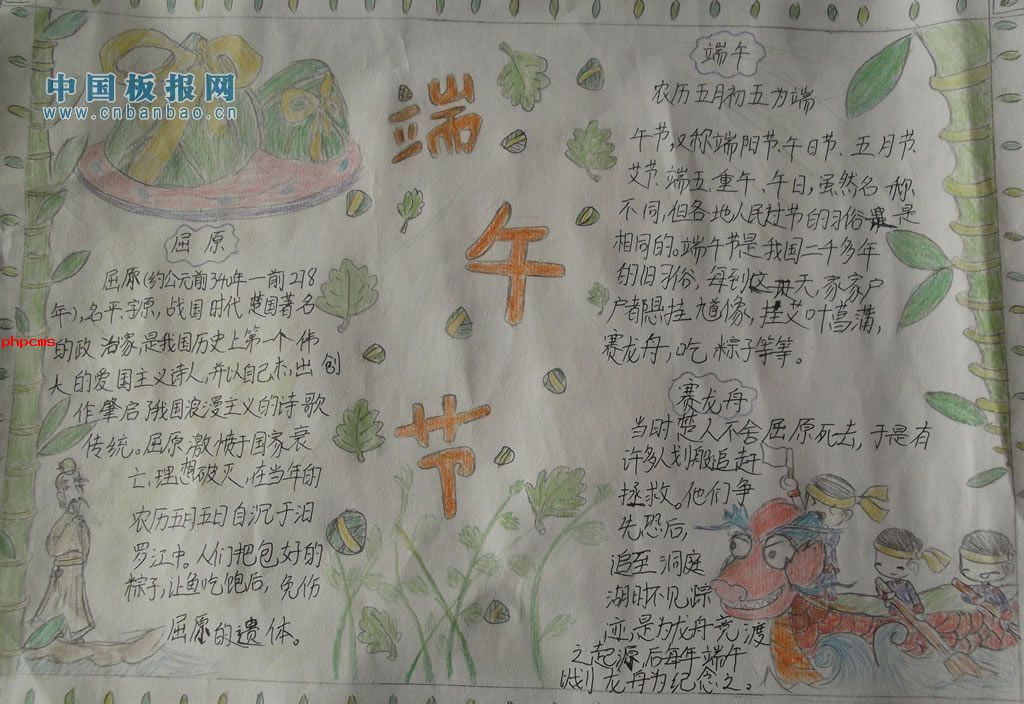 中国板报网
www.cnbanbao.cn
phpcms
端
午
节
屈原
屈原(约公元前340年一前278
年),名平.字原,战国时代楚国著名
的政治家,是我国历史上第一个伟
大的爱国主义诗人,并以自己杰出创
作肇启了我国浪漫主义的诗歌
传统。屈原激愤于国家衰
亡,理想破灭,在当年的
农历五月五日自沉于汨
罗江中。人们把包好的
粽子,让鱼吃饱后,免伤
屈原的遗体。
端午
农历五月初五为端
午节,又称端阳节、午日节、五月节、
艾节、端五、重午、午日,虽然名称
不同,但各地人民过节的习俗是
相同的。端午节是我国二千多年
的旧习俗,每到这天,家家户
户都悬挂 馗像,挂艾叶菖蒲,
赛龙舟,吃粽子等等。
赛龙舟
当时楚人不舍屈原死去,于是有
许多人划船追赶
拯救。他们争
先恐后,
追至洞庭
湖时不见踪
迹,是为龙舟竞渡
之起源,后每年端午
划龙舟为纪念之。